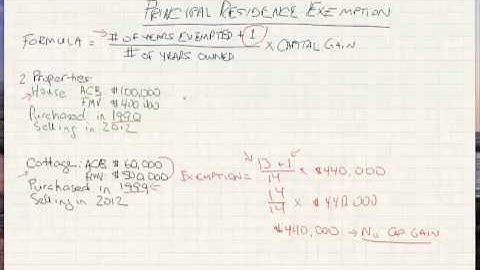 PRINCIPAL RESIDENCE EXEMPTION
FORMULA = # OF YEARS EXEMPTED + 1 × CAPITAL GAIN
# OF YEARS OWNED
2 Properties:
House ACB $100,000
FMV $400,000
Purchased in 1990
Selling in 2012
Cottage: ACB $60,000
FMV $500,000
Purchased in 1999
Selling in 2012
EXEMPTION = 13 + 1 × $440,000
14
14 × $440,000
14
$440,000 → No CAP GAIN